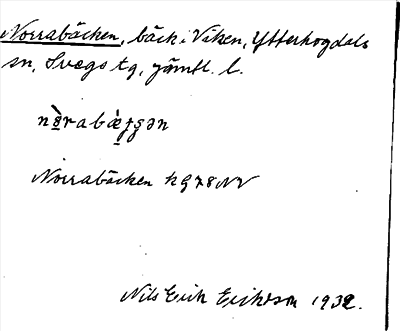 Norrabäcken, bäck i Viken, Ytterhogdals
sn, Svegs tg, Jämtl. l.
Norrabäcken
Nils Erik Erikson 1932.